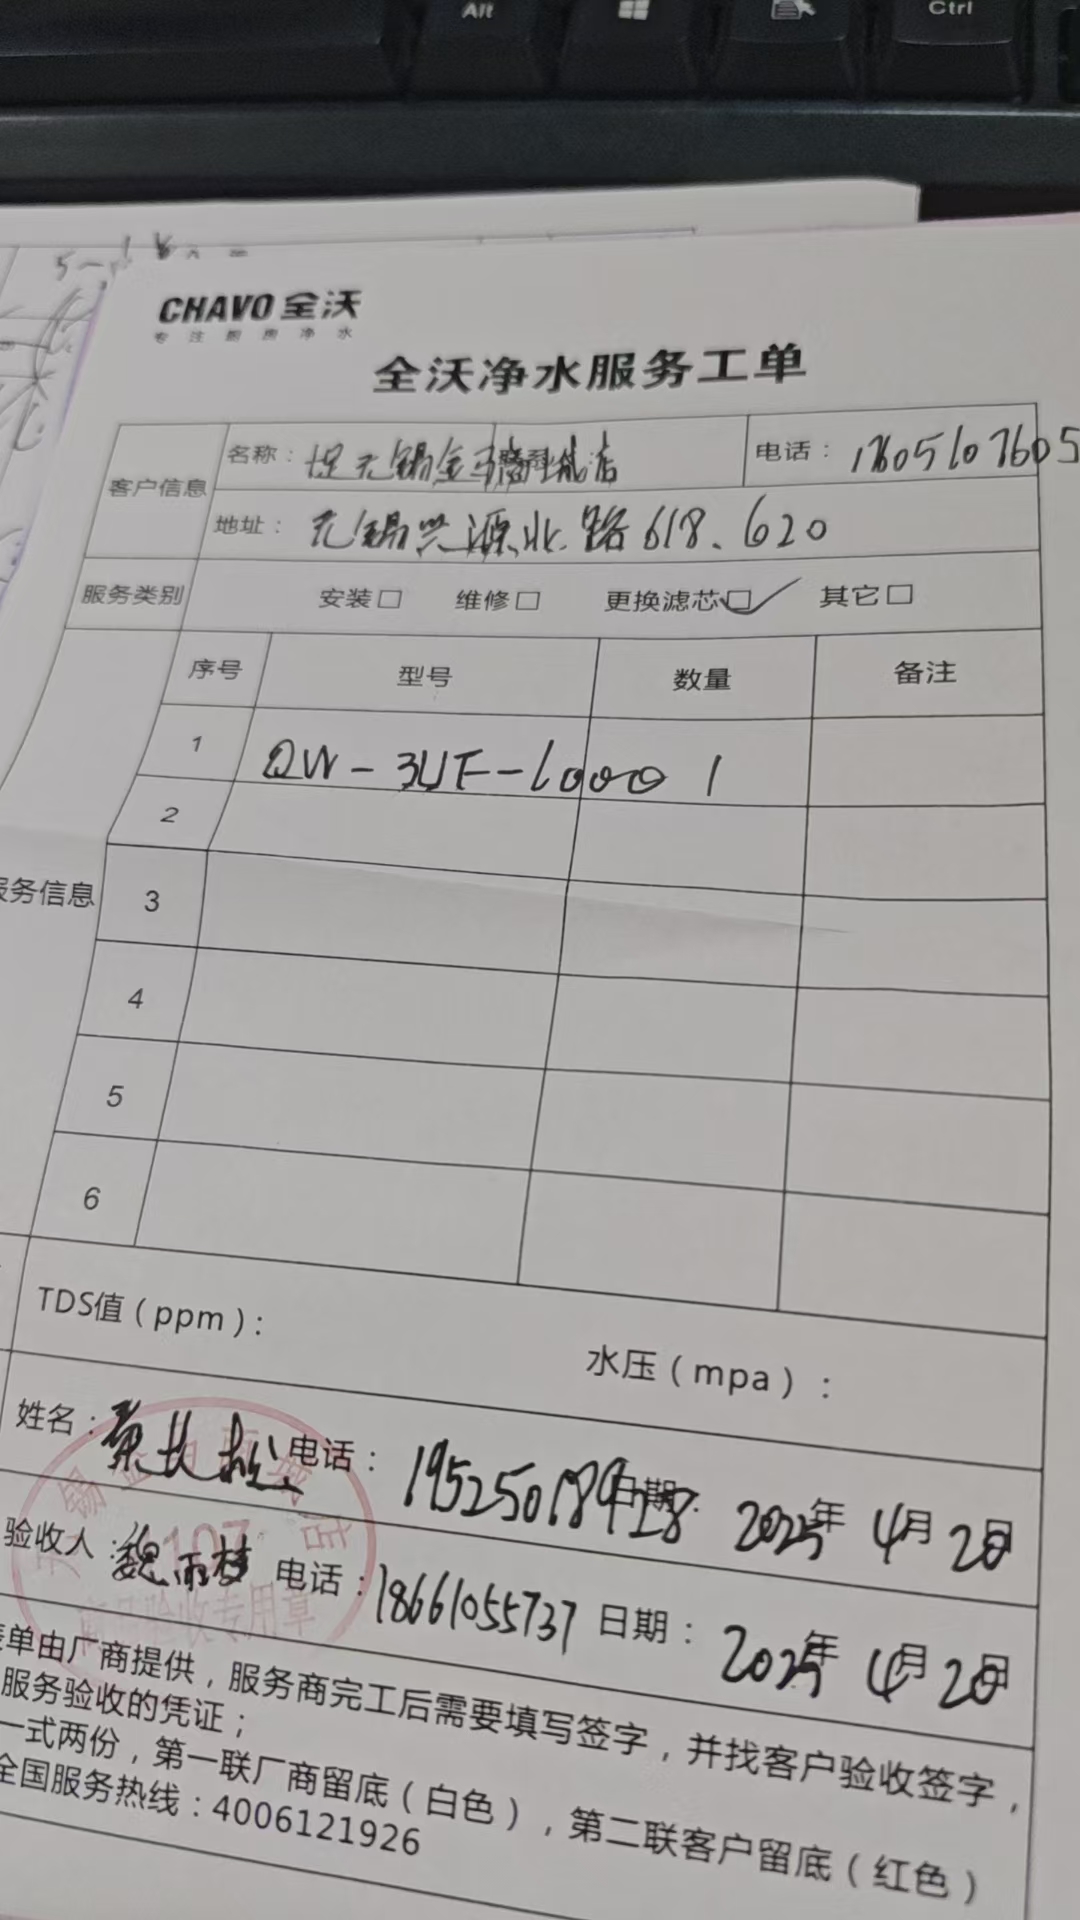 Alt
Ctrl
CHAVO 全沃
专注厨房净水
全沃净水服务工单
客户信息
名称： 无锡金马商城店
电话： 17605107605
地址： 无锡兴源北路618.620
服务类别
安装□ 维修□ 更换滤芯□✓ 其它□
序号 型号 数量 备注
1 QW-3UF-1000 1
2
服务信息
3
4
5
6
TDS值（ppm）: 水压（mpa）:
姓名: 电话: 19525018928 日期: 2025年 4月20日
验收人: 魏雨梦 电话: 18661055737 日期: 2025年 4月20日
商品验收专用章
单由厂商提供，服务商完工后需要填写签字，并找客户验收签字，
服务验收的凭证；
一式两份，第一联厂商留底（白色），第二联客户留底（红色）
全国服务热线：4006121926